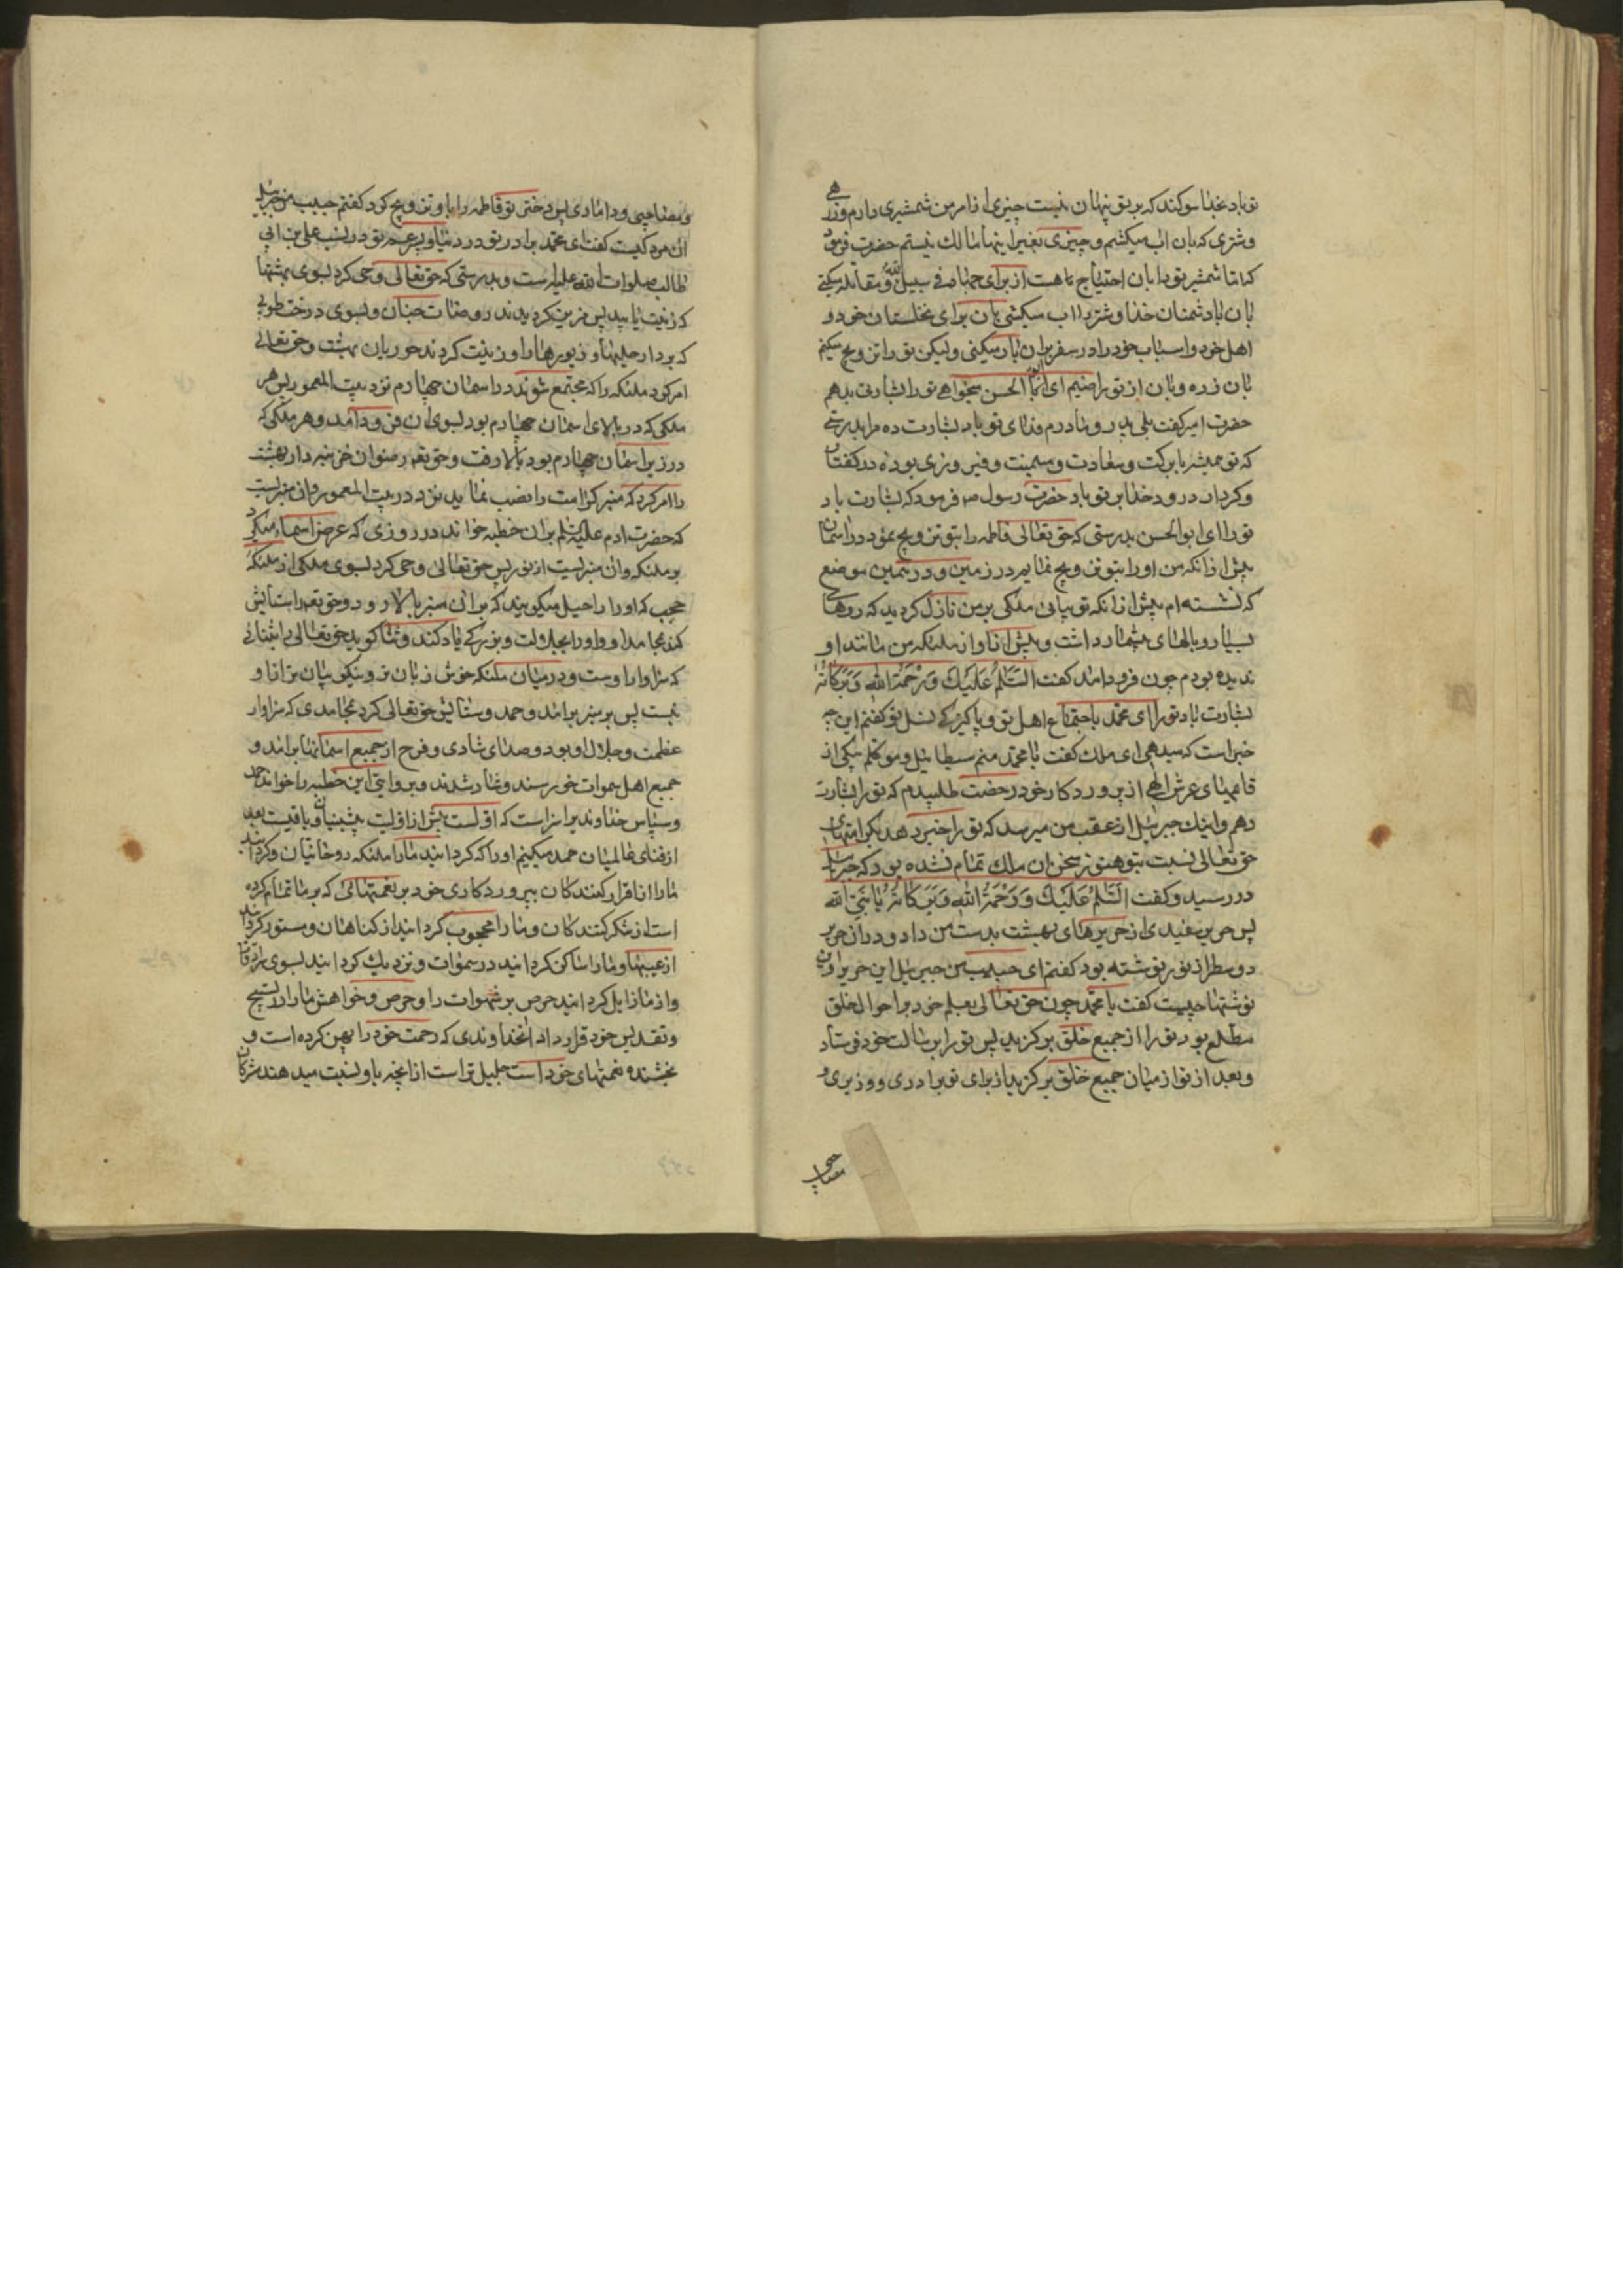 تو باد بخدا سوکند که بر تو پنهان نیست چیزی از امر من شمشیری دارم و زرهی
و شتری که بان اب میکشم و چیزی بغیر اینها مالک نیستم حضرت فرمود
که اما شمشیر تو را بان احتیاج هست از برای جهاد فی سبیل الله و مقاتله میکنی
بان با دشمنان خدا و شتر اب میکشی بان برای نخلستان خود و
اهل خود و اسباب خود را در سفر بران بار میکنی ولیکن تو را تزویج میکنم
بان زره و بان از تو راضیم ای ابا الحسن میخواهی تو را بشارتی بدهم
حضرت امیر کفت بلی پدر و مادرم فدای تو باد بشارت ده مرا بدرستی
که تو همیشه با برکت و سعادت و میمنت و فیروزی بوده در کفتار
و کردار درود خدا بر تو باد حضرت رسول ص فرمود که بشارت باد
تو را ای ابو الحسن بدرستی که حق تعالی فاطمه را بتو تزویج نمود در اسمان
پیش از انکه من او را بتو تزویج نمایم در زمین و در همین موضع
که نشسته ام پیش از انکه تو بیائی ملکی بر من نازل کردید که روهای
بسیار و بالهای بیشمار داشت و پیش از او از ملئکه من مانند او
ندیده بودم چون فرود امد کفت السَّلمُ عَلَیكَ وَرَحْمَةُ الله وَبَرَکَاتُهُ
بشارت باد تو را ای محمد باجتماع اهل تو و پاکیزکی نسل تو کفتم این چه
خبر است که میدهی ای ملک کفت یا محمد منم سیطائیل و موکلم بیکی از
قائمهای عرش الهی از پروردکار خود رخصت طلبیدم که تو را بشارت
دهم و اینك جبرئیل از عقب من میرسد که تو را خبر دهد بکرامتهای
حق تعالی نسبت بتو هنوز سخن ان ملك تمام نشده بود که جبرئیل
در رسید و کفت السَّلمُ عَلَیكَ وَرَحْمَةُ الله وَبَرَکَاتُهُ یَا نَبِیَّ الله
پس حریر سفیدی از حریرهای بهشت بدست من داد و دران حریر
دو سطر از نور نوشته بود کفتم ای حبیب من جبرئیل این حریر و این
نوشتها چیست کفت یا محمد چون حق تعالی بعلم خود بر احوال خلق
مطلع بود تو را از جمیع خلق برکزید پس تو را برسالت خود فرستاد
و بعد از تو از میان جمیع خلق برکزید از برای تو برادری و وزیری و
مصاحبی
و مصاحبی و دامادی پس دختر تو فاطمه را باو تزویج کرد کفتم حبیب من جبرئیل
ان مرد کیست کفت ای محمد برادر تو در دنیا و پسر عم تو در نسب علی بن ابی
طالب صلوات الله علیه است و بدرستی که حق تعالی وحی کرد بسوی بهشتها
که زینت یابید پس مزین کردیدند روضات جنان و بسوی درخت طوبی
که بردار حلیها و زیورها را و زینت کردند حوریان بهشت و حق تعالی
امر کرد ملئکه را که مجتمع شوند در اسمان چهارم نزد بیت المعمور پس هر
ملکی که در بالای اسمان چهارم بود بسوی ان فرود امد و هر ملکی که
در زیر اسمان چهارم بود بالا رفت و حق تعالی رضوان خزینه دار بهشت
را امر کرد که منبر کرامت را نصب نماید نزد در بیت المعمور و ان منبریست
که حضرت ادم علیه السلم بران خطبه خواند در روزی که عرض اسما میکرد
بر ملئکه و ان منبریست از نور پس حق تعالی وحی کرد بسوی ملکی از ملئکهٔ
حجب که او را راحیل میکویند که بر ان منبر بالا رود و حق تعالی را ستایش
کند بمحامد او و او را بجلالت و بزرکی یاد کند و ثنا کوید حق تعالی را بثنائی
که سزاوار اوست و در میان ملئکه خوش زبان تر و نیکو بیان تر از او
نیست پس بر منبر برامد و حمد و ستایش حق تعالی کرد بمحامدی که سزاوار
عظمت و جلال او بود و صدای شادی و فرح از جمیع اسمانها برامد و
جمیع اهل سموات خورسند و شاد شدند و بروایتی این خطبه را خواند حمد
و سپاس خداوندیرا سزاست که اولست پیش از اولیت پیشینیان و باقیست بعد
از فنای عالمیان حمد میکنیم او را که کردانید ما را ملئکه روحانیان و کردانید
ما را از اقرار کنندکان بپروردکاری خود بر نعمتهائی که بر ما تمام کرده
است از شکر کنندکان و ما را محجوب کردانید از کناهان و مستور کردانید
از عیبها و ما را ساکن کردانید در سموات و نزدیك کردانید بسوی سرادقات
و از ما زایل کردانید حرص بر شهوات را و حرص و خواهش ما را در تسبیح
و تقدیس خود قرار داد انخداوندی که رحمت خود را پهن کرده است و
بخشنده نعمتهای خود است جلیل تر است از انچه باو نسبت میدهند مشرکان